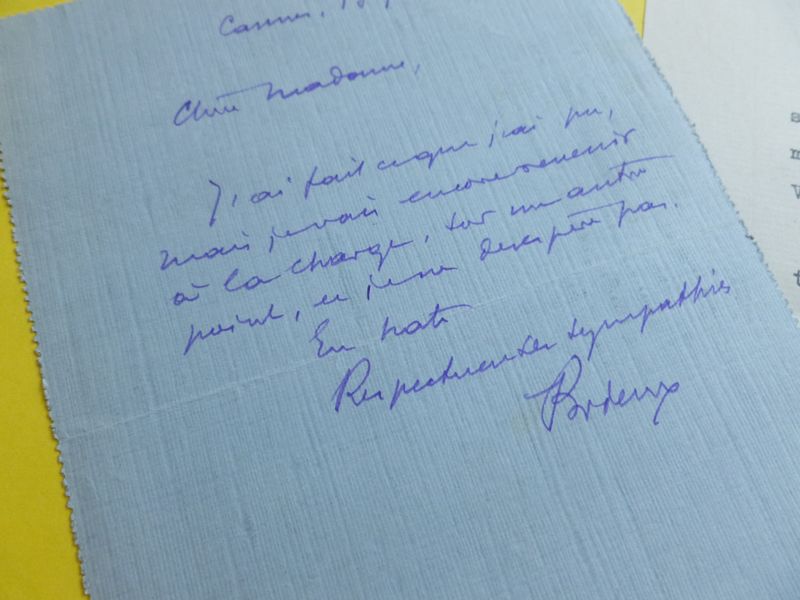 Cannes,
Chère Madame,
J'ai fait ce que j'ai pu,
mais je vais encore revenir
à la charge, sur un autre
point, et je ne désespère pas.
En hâte
Respectueuses sympathies
a
m
V
t